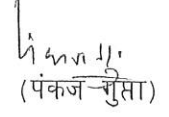 (पंकज गुप्ता)